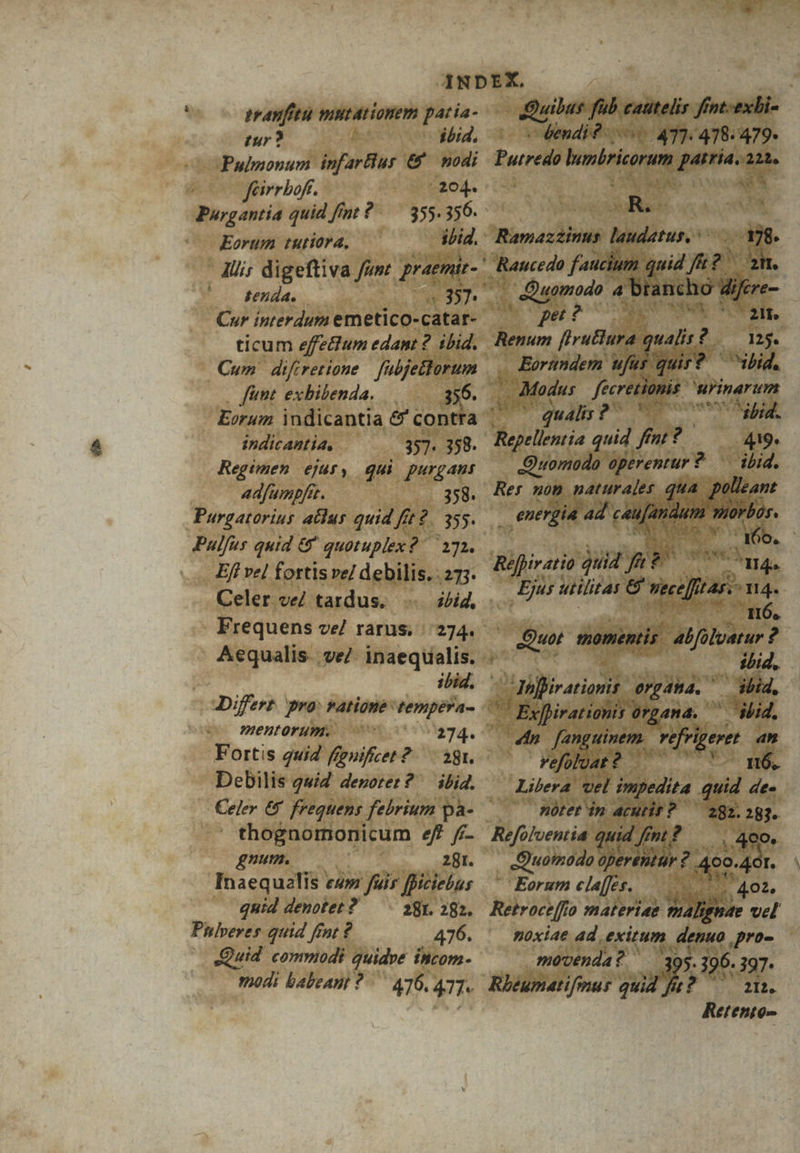 INDEX.
tranſitu mutationem patia-
tur? ibid.
Pulmonum infarctus & nodi
ſcirrhoſi. 204.
Purgantia quid ſint? 355. 356.
Eorum tutiora. ibid.
Illis digeſtiva ſunt praemit-
tenda. 357.
Cur interdum emetico-catar-
ticum effectum edant? ibid.
Cum diſcretione ſubjectorum
ſunt exhibenda. 356.
Eorum indicantia & contra
indicantia. 357. 358.
Regimen ejus, qui purgans
adſumpſit. 358.
Purgatorius actus quid ſit? 355.
Pulſus quid & quotuplex? 272.
Eſt vel fortis vel debilis. 273.
Celer vel tardus. ibid.
Frequens vel rarus. 274.
Aequalis vel inaequalis.
ibid.
Differt pro ratione tempera-
mentorum. 274.
Fortis quid ſignificet? 281.
Debilis quid denotet? ibid.
Celer & frequens febrium pa-
thognomonicum eſt ſi-
gnum. 281.
Inaequalis cum ſuis ſpiciebus
quid denotet? 281. 282.
Pulveres quid ſint? 476.
Quid commodi quidve incom-
modi habeant? 476. 477.
Quibus ſub cautelis ſint exhi-
bendi? 477. 478. 479.
Putredo lumbricorum patria. 222.
R.
Ramazzinus laudatus. 178.
Raucedo faucium quid ſit? 211.
Quomodo a brancho diſcre-
pet? 211.
Renum ſtructura qualis? 125.
Eorundem uſus quis? ibid.
Modus ſecretionis urinarum
qualis? ibid.
Repellentia quid ſint? 419.
Quomodo operentur? ibid.
Res non naturales qua polleant
energia ad cauſandum morbos.
160.
Reſpiratio quid ſit? 114.
Ejus utilitas & neceſſitas. 114.
116.
Quot momentis abſolvatur?
ibid.
Inſpirationis organa. ibid.
Exſpirationis organa. ibid.
An ſanguinem refrigeret an
reſolvat? 116.
Libera vel impedita quid de-
notet in acutis? 282. 283.
Reſolventia quid ſint? 400.
Quomodo operentur? 400. 401.
Eorum claſſes. 402.
Retroceſſio materiae malignae vel
noxiae ad exitum denuo pro-
movenda? 395. 396. 397.
Rheumatiſmus quid ſit? 212.
Retento-